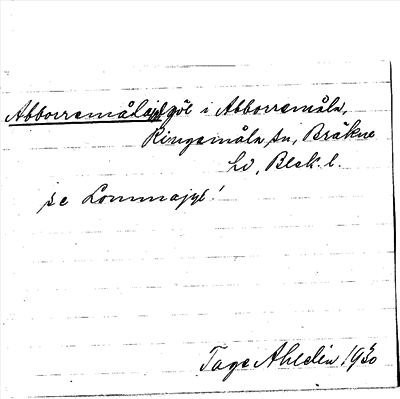 Abborremålagöl i Abborremåla,
Ringamåla sn, Bräkne
hd, Blek. l.
se Lommagyl!
Tage Ahldén 1930